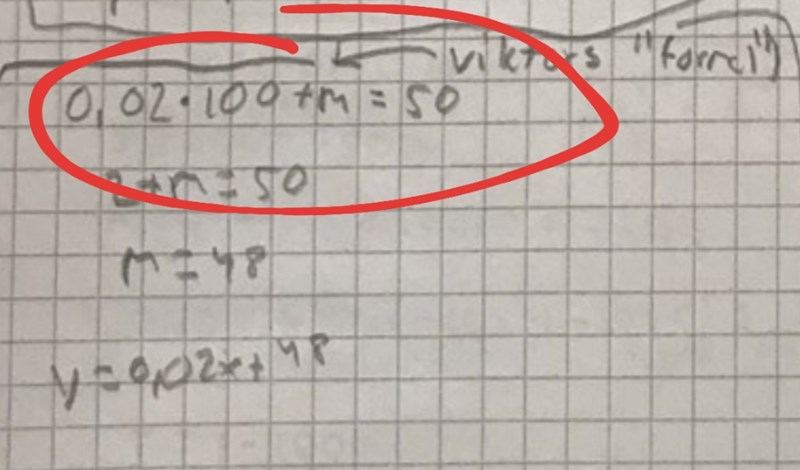 viktors "formel"
0,02·100+m=50
2+m=50
m=48
y=0,02x+48